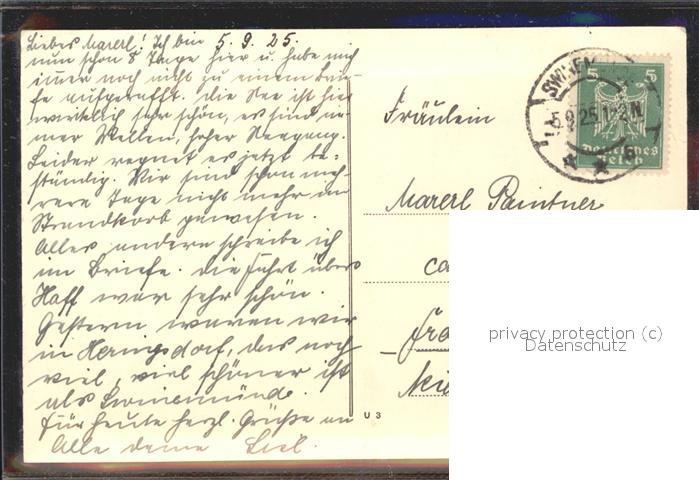 Liebes Marerl! Ich bin 5.9.25.
nun schon 8 Tage hier u. habe mich
immer noch nicht zu einem Brie-
fe aufgerafft. Die See ist hier
wirklich sehr schön, es sind im-
mer Wellen, hoher Seegang.
Leider regnet es jetzt be-
ständig. Wir sind schon meh-
rere Tage nicht mehr im
Strandkorb gewesen.
Alles andere schreibe ich
im Briefe. Die Fahrt übers
Haff war sehr schön.
Gestern waren wir
in Heringsdorf, das noch
viel, viel schöner ist
als Swinemünde.
Für heute herzl. Grüße an
Alle deine Liesl.
Fräulein
Marerl Paintner
U 3
SWINEM
5.9.25.1-2N.
5 5
Deutsches
Reich
privacy protection (c)
Datenschutz